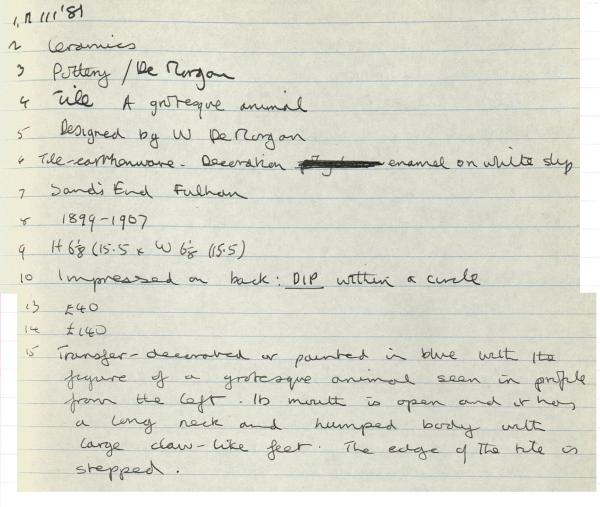 1, R 111'81
2 Ceramics
3 Pottery / De Morgan
4 Tile A grotesque animal
5 Designed by W De Morgan
6 Tile-earthenware. Decoration enamel on white slip
7 Sands End Fulham
8 1899-1907
9 H 6⅛ (15.5 x W 6⅛ (15.5)
10 Impressed on back: DIP within a circle
13 £40
14 £140
15 Transfer-decorated or painted in blue with the
figure of a grotesque animal seen in profile
from the left. Its mouth is open and it has
a long neck and humped body with
large claw-like feet. The edge of the tile is
stepped.